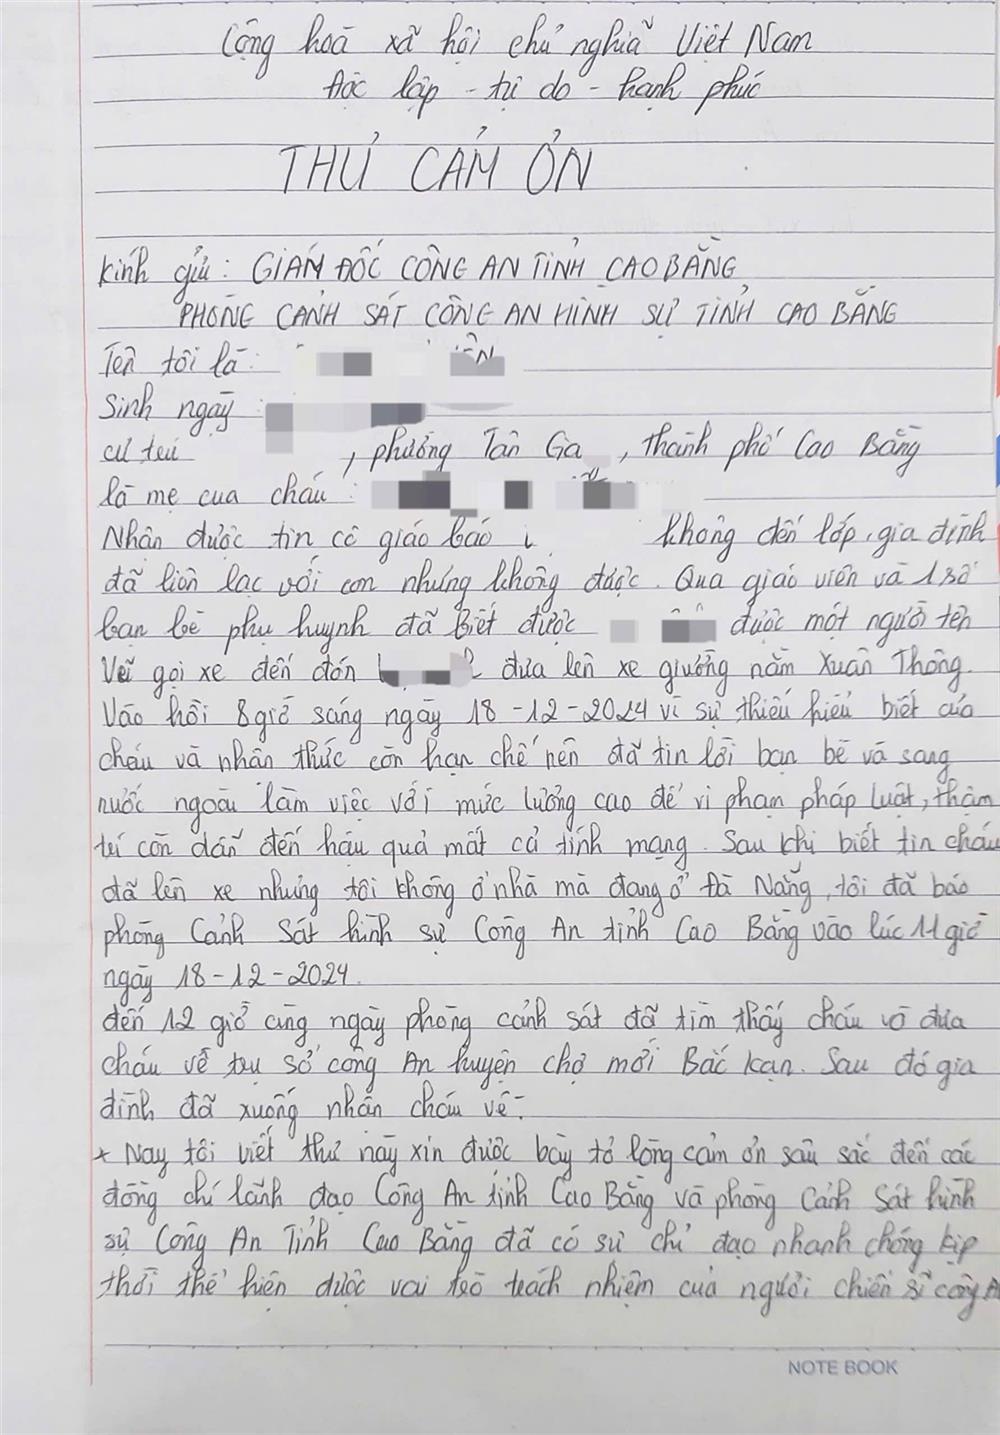 Cộng hoà xã hội chủ nghĩa Việt Nam
Độc lập - tự do - hạnh phúc
THƯ CẢM ƠN
Kính gửi: GIÁM ĐỐC CÔNG AN TỈNH CAO BẰNG
PHÒNG CẢNH SÁT CÔNG AN HÌNH SỰ TỈNH CAO BẰNG
Tên tôi là:
Sinh ngày:
cư tui , phường Tân Gia , thành phố Cao Bằng
là mẹ của cháu:
Nhận được tin cô giáo báo không đến lớp, gia đình
đã liên lạc với con nhưng không được. Qua giáo viên và 1 số
bạn bè phụ huynh đã biết được được một người tên
gọi xe đến đón đưa lên xe giường nằm Xuân Thông.
Vào hồi 8 giờ sáng ngày 18-12-2024 vì sự thiếu hiểu biết của
cháu và nhận thức còn hạn chế nên đã tin lời bạn bè và sang
nước ngoài làm việc với mức lương cao để vi phạm pháp luật, thậm
trí còn dẫn đến hậu quả mất cả tính mạng. Sau khi biết tin cháu
đã lên xe nhưng tôi không ở nhà mà đang ở Đà Nẵng, tôi đã báo
phòng Cảnh Sát hình sự Công An tỉnh Cao Bằng vào lúc 11 giờ
ngày 18-12-2024.
đến 12 giờ cùng ngày phòng cảnh sát đã tìm thấy cháu và đưa
cháu về trụ sở công An huyện chợ mới Bắc Kạn. Sau đó gia
đình đã xuống nhận cháu về.
* Nay tôi viết thư này xin được bày tỏ lòng cảm ơn sâu sắc đến các
đồng chí lãnh đạo Công An tỉnh Cao Bằng và phòng Cảnh Sát hình
sự Công An Tỉnh Cao Bằng đã có sự chỉ đạo nhanh chóng kịp
thời thể hiện được vai trò trách nhiệm của người chiến sĩ công A
NOTE BOOK